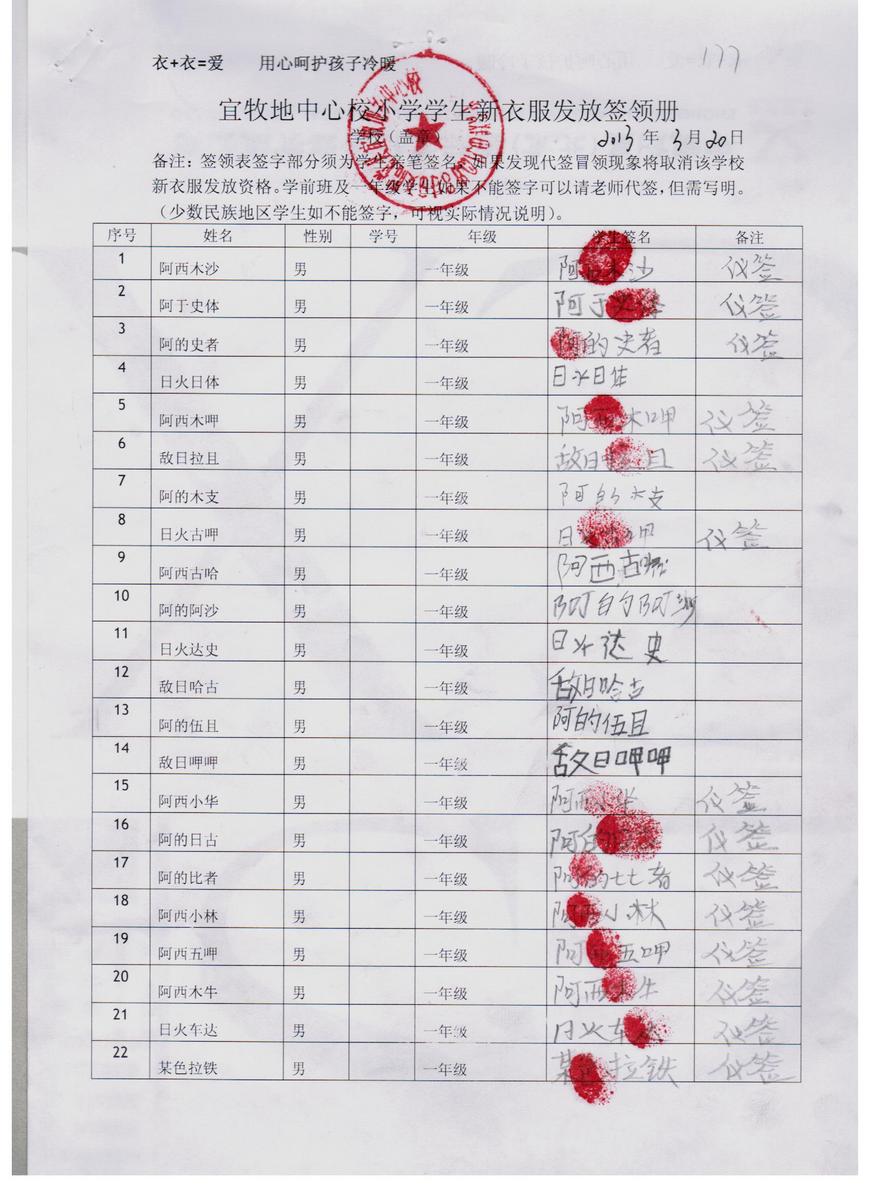 衣+衣=爱 用心呵护孩子冷暖
177
宜牧地中心校小学学生新衣服发放签领册
学校（盖章） 2013 年 3 月 20 日
备注：签领表签字部分须为学生亲笔签名，如果发现代签冒领现象将取消该学校
新衣服发放资格。学前班及一年级学生如果不能签字可以请老师代签，但需写明。
（少数民族地区学生如不能签字，可视实际情况说明）。
序号 姓名 性别 学号 年级 学生签名 备注
1 阿西木沙 男 一年级 阿西木沙 仪签
2 阿于史体 男 一年级 阿于 仪签
3 阿的史者 男 一年级 阿的史者 仪签
4 日火日体 男 一年级 日火日体
5 阿西木呷 男 一年级 阿西木呷 仪签
6 敌日拉且 男 一年级 敌日拉且 仪签
7 阿的木支 男 一年级 阿的木支
8 日火古呷 男 一年级 日火古呷 仪签
9 阿西古哈 男 一年级 阿西古哈
10 阿的阿沙 男 一年级 阿的阿沙
11 日火达史 男 一年级 日火达史
12 敌日哈古 男 一年级 敌日哈古
13 阿的伍且 男 一年级 阿的伍且
14 敌日呷呷 男 一年级 敌日呷呷
15 阿西小华 男 一年级 阿西小华 仪签
16 阿的日古 男 一年级 阿的 仪签
17 阿的比者 男 一年级 阿的比者 仪签
18 阿西小林 男 一年级 阿西小林 仪签
19 阿西五呷 男 一年级 阿西五呷 仪签
20 阿西木牛 男 一年级 阿西木牛 仪签
21 日火车达 男 一年级 日火车达 仪签
22 某色拉铁 男 一年级 某色拉铁 仪签